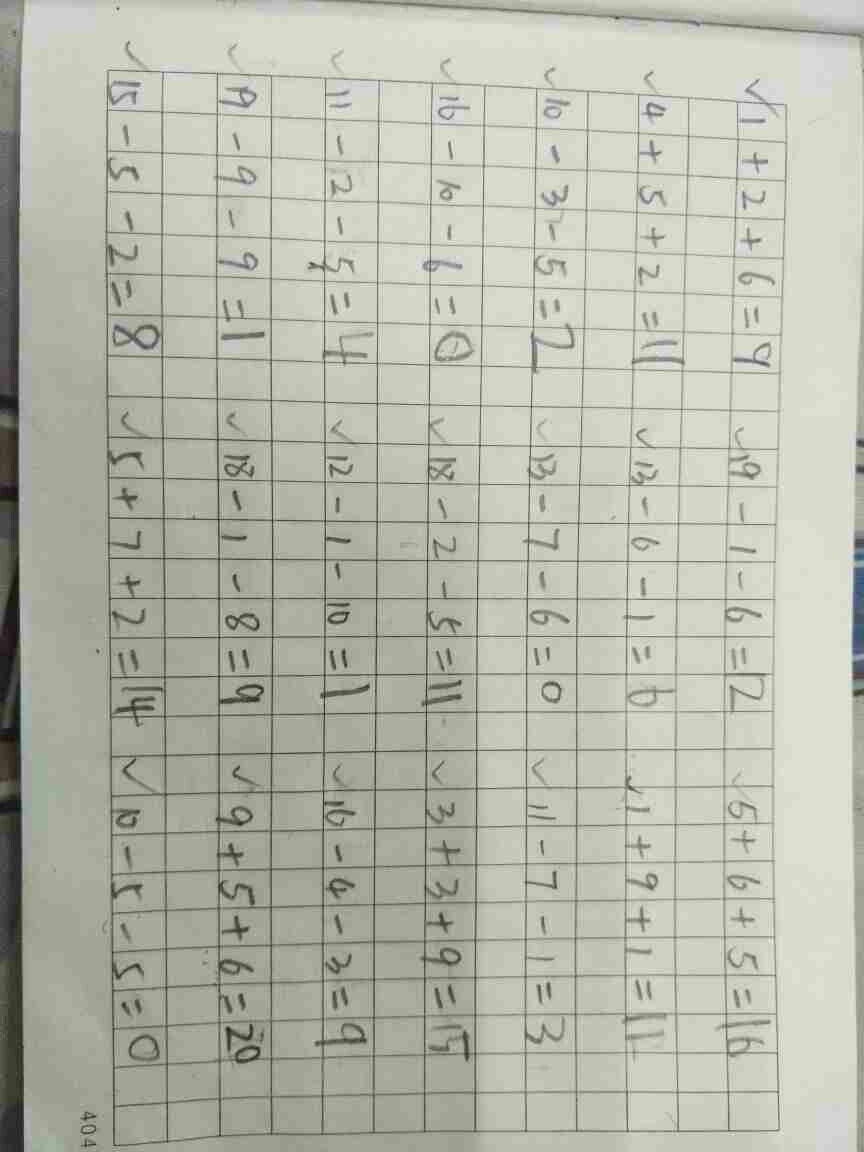 ✓1+2+6=9 ✓19-1-6=12 ✓5+6+5=16
✓4+5+2=11 ✓13-6-1=6 ✓1+9+1=11
✓10-3-5=2 ✓13-7-6=0 ✓11-7-1=3
✓16-10-6=0 ✓18-2-5=11 ✓3+3+9=15
✓11-2-5=4 ✓12-1-10=1 ✓16-4-3=9
✓19-9-9=1 ✓18-1-8=9 ✓9+5+6=20
✓15-5-2=8 ✓5+7+2=14 ✓10-5-5=0
404